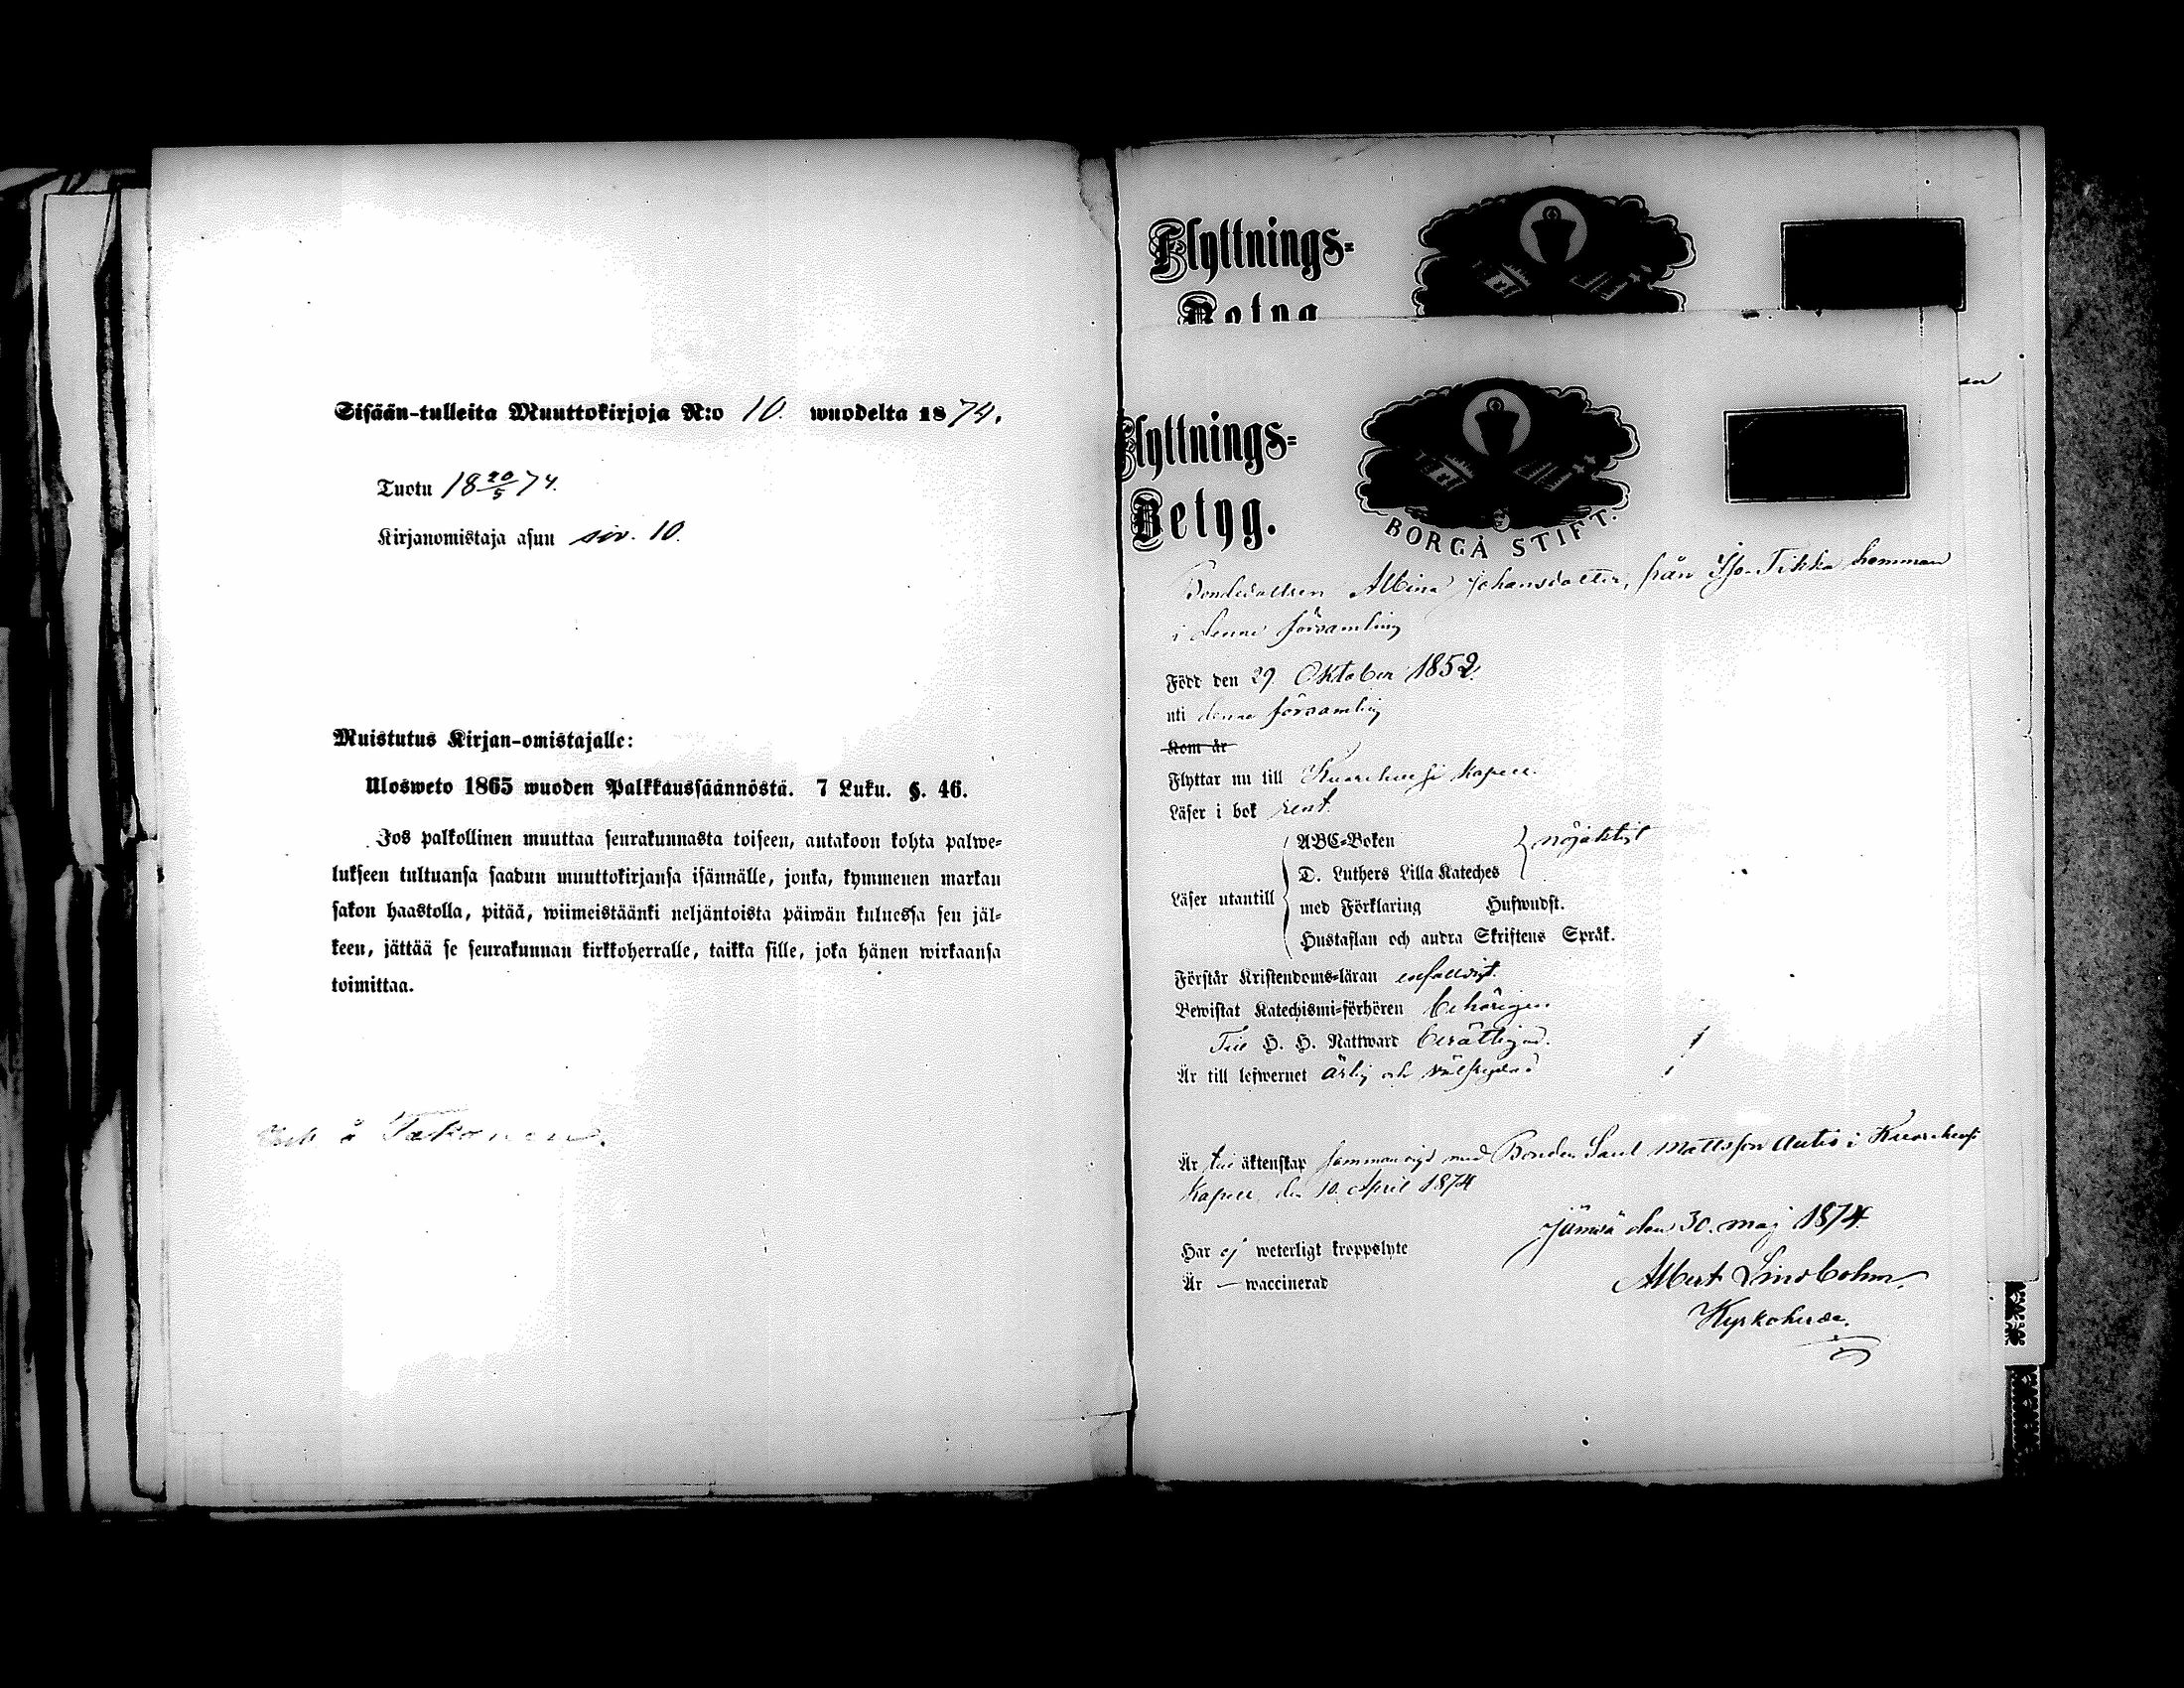 Sisään-tulleita Muuttokirjoja N:o 10. wuodelta 1874.
Tuotu 18 20/5 74.
Kirjanomistaja asuu siv. 10.
Muistutus Kirjan-omistajalle:
Ulosweto 1865 wuoden Palkkaussäännöstä. 7 Luku. §. 46.
Jos palkollinen muuttaa seurakunnasta toiseen, antakoon kohta palwe-
lukseen tultuansa saadun muuttokirjansa isännälle, jonka, kymmenen markan
sakon haastolla, pitää, wiimeistäänki neljäntoista päiwän kuluessa sen jäl-
keen, jättää se seurakunnan kirkkoherralle, taikka sille, joka hänen wirkaansa
toimittaa.
Flyttnings-
Betyg
Flyttnings-
Betyg.
BORGÅ STIFT.
Bondedottren Albina Johansdotter, från Iso-Tikka hemman
i denna församling
Född den 29 Oktober 1852.
uti denna församling
Kom år
Flyttar nu till Kuorehvesi Kapell.
Läser i bok rent.
ABC-Boken nöjaktigt
D. Luthers Lilla Kateches
Läser utantill
med Förklaring Hufwudst.
Hustaflan och andra Skriftens Språk.
Förstår Kristendoms-läran enfaldigt.
Bewistat Katechismi-förhören behörigen
Till H. H. Nattward berättigad.
Är till lefwernet ärlig och välfrejdad
Är till äktenskap sammanvigd med Bonden Saul Mattsson Autio i Kuorehvesi
Kapell den 10. April 1874
Jämsä den 30. maj 1874.
Har ej weterligt kroppslyte
Är — waccinerad
Albert Lindbohm,
Kyrkoherde.